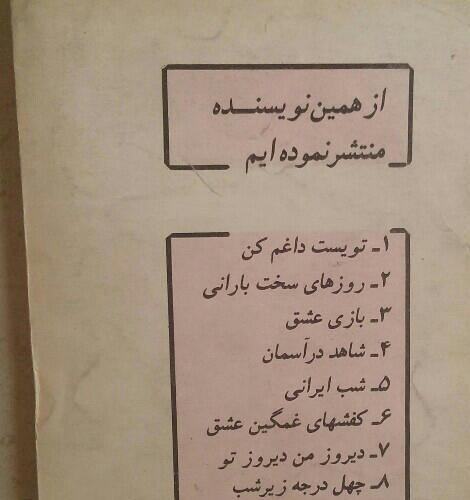 از همین نویسنده
منتشر نموده ایم
۱ـ تویست داغم کن
۲ـ روزهای سخت بارانی
۳ـ بازی عشق
۴ـ شاهد در آسمان
۵ـ شب ایرانی
۶ـ کفشهای غمگین عشق
۷ـ دیروز من دیروز تو
۸ـ چهل درجه زیر شب